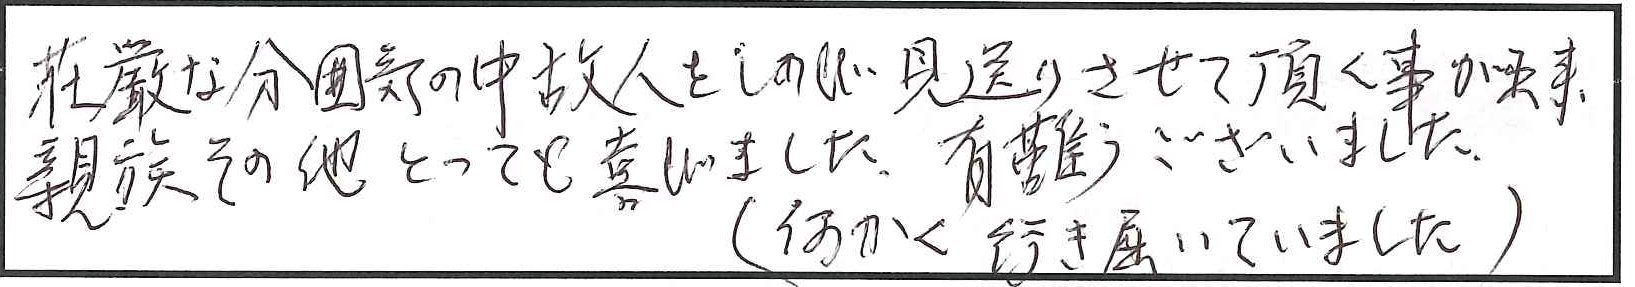 荘厳な分囲気の中故人をしのび見送りさせて頂く事が出来、
親族その他とっても喜びました。有難うございました。
(何かく行き届いていました)